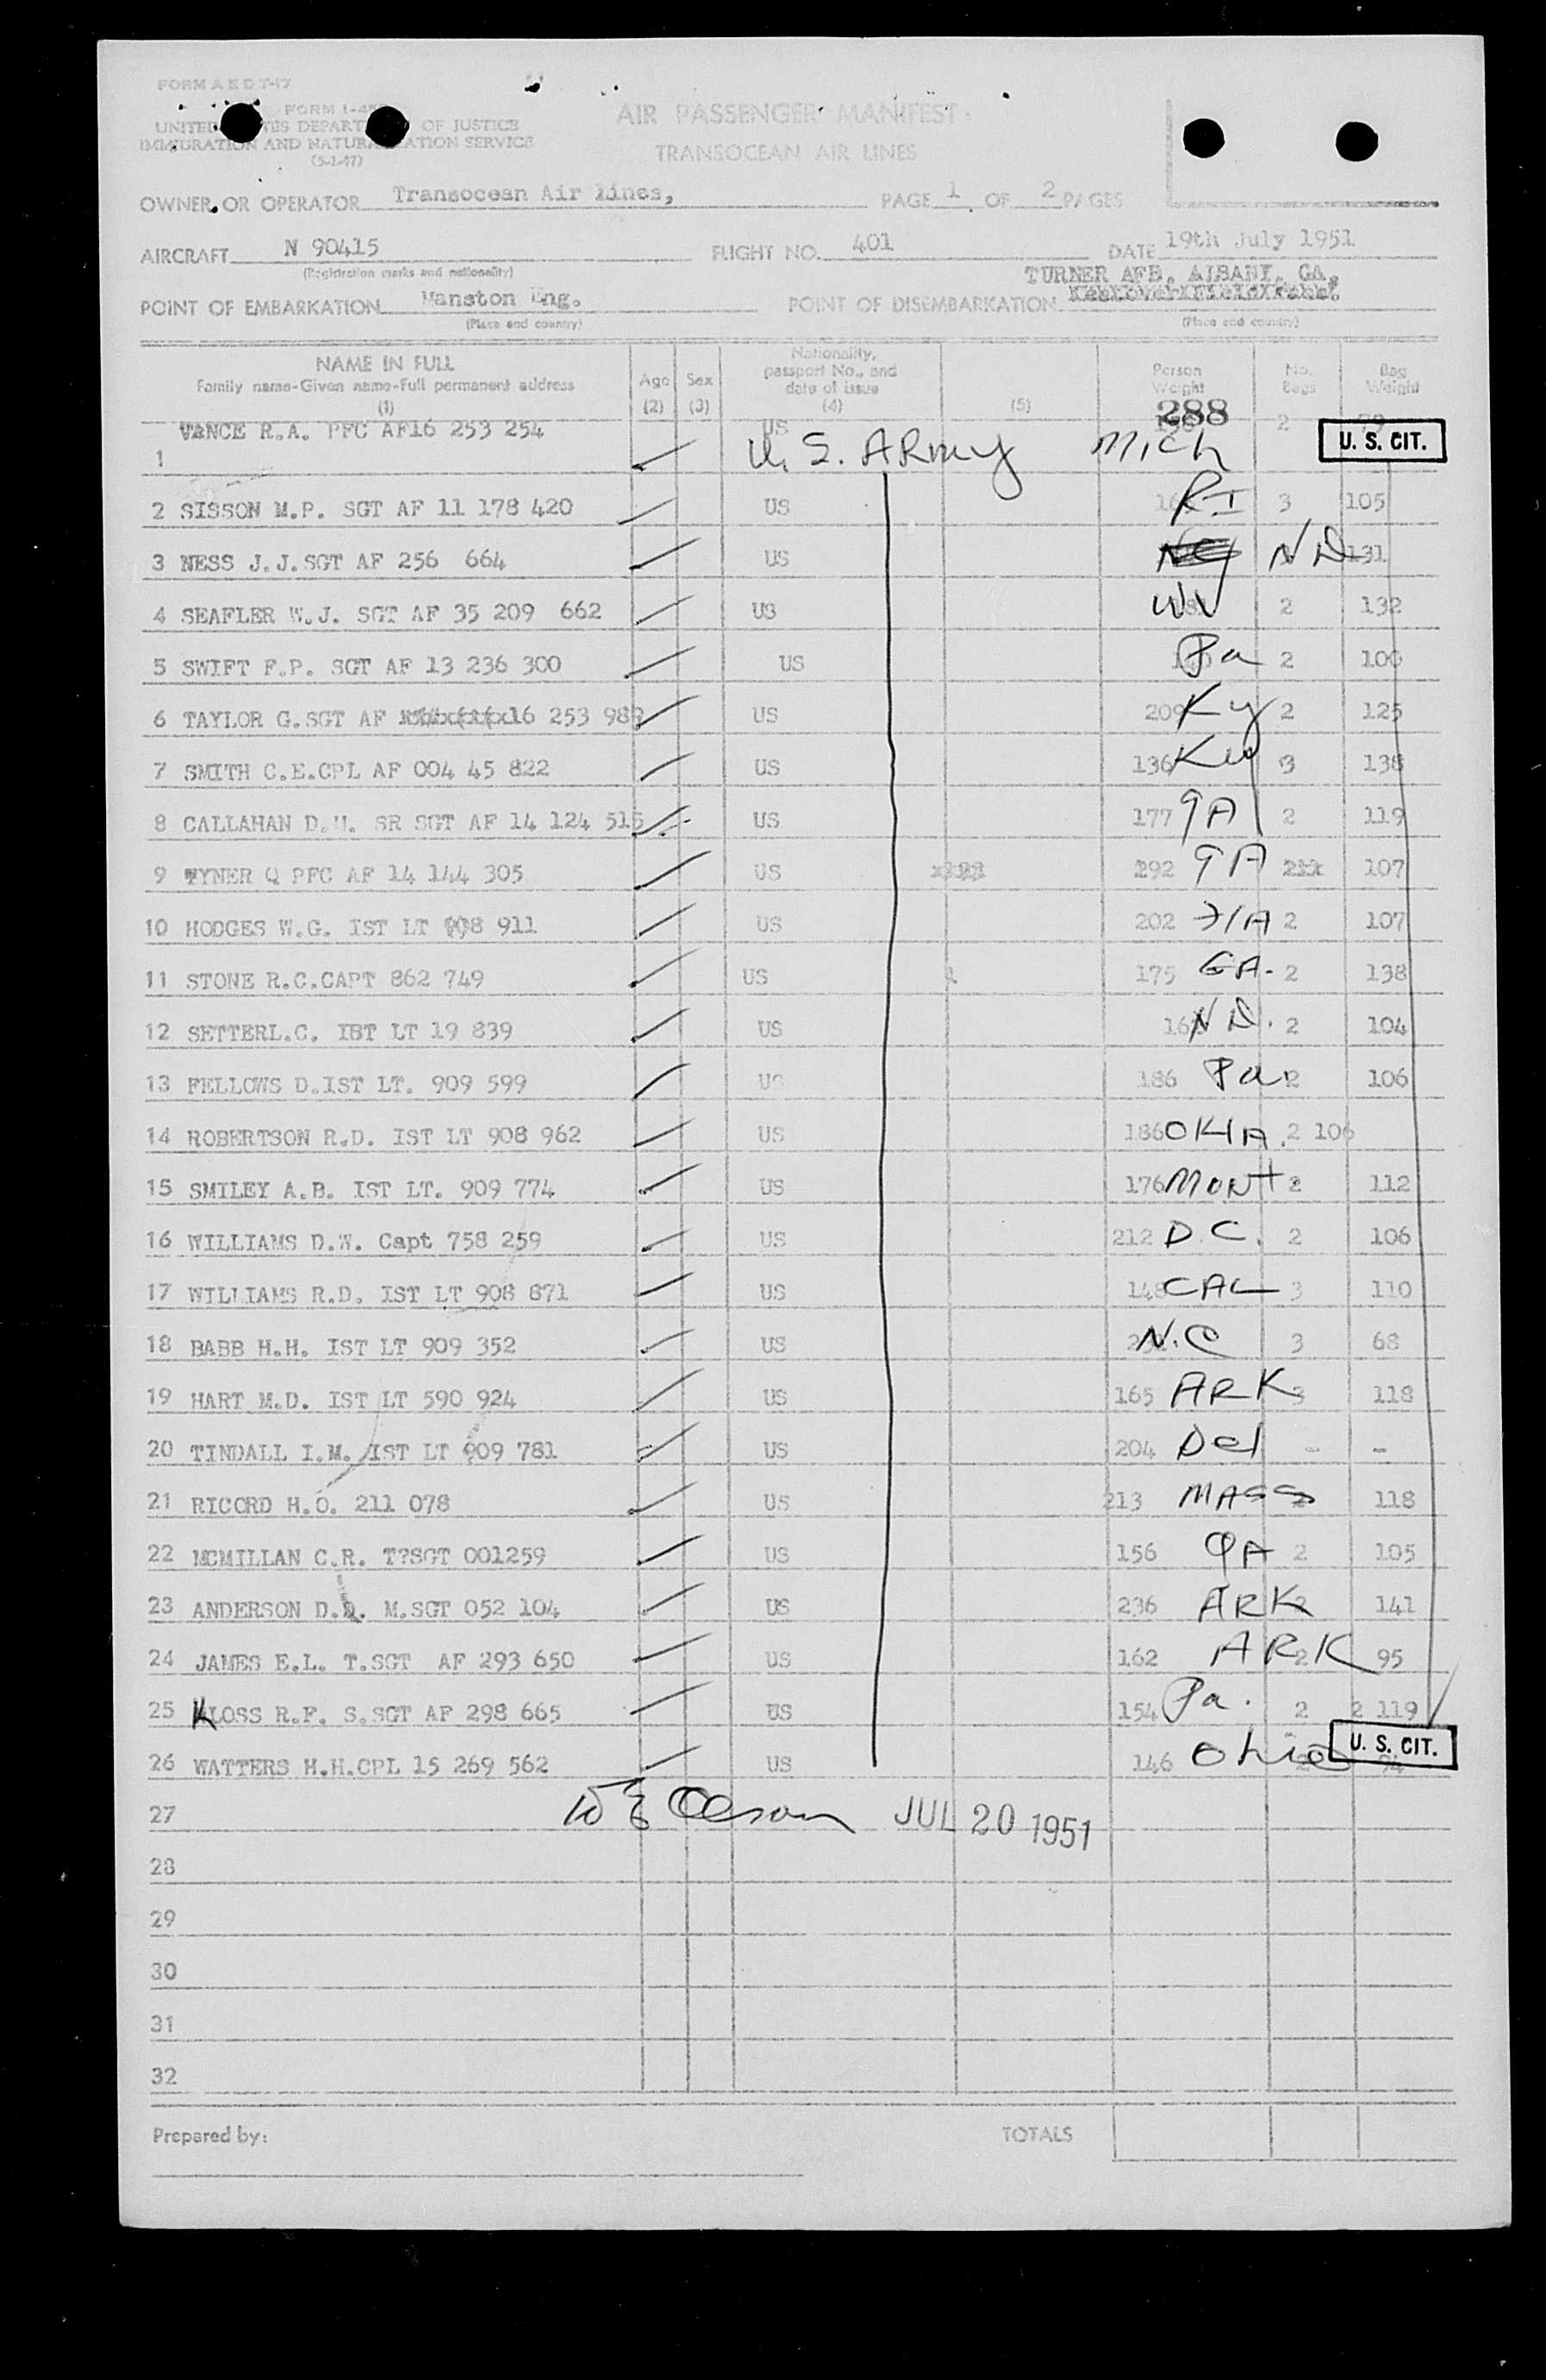 FORM A E D T-17
FORM I-
UNITED STATES DEPARTMENT OF JUSTICE
IMMIGRATION AND NATURALIZATION SERVICE
(5-1-47)
AIR PASSENGER MANIFEST
TRANSOCEAN AIR LINES
OWNER OR OPERATOR Transocean Air lines, PAGE 1 OF 2 PAGES
AIRCRAFT N 90415 FLIGHT NO. 401 DATE 19th July 1951
(Registration marks and nationality)
TURNER AFB, ALBANY, GA.
POINT OF EMBARKATION Manston Eng. POINT OF DISEMBARKATION
(Place and country) (Place and country)
NAME IN FULL Family name-Given name-Full permanent address (1) Age (2) Sex (3) Nationality, passport No., and date of issue (4) (5) Person Weight No. Bags Bag Weight
288
VANCE R.A. PFC AF16 253 254 US 2 79
1 U. S. ARmy Mich U. S. CIT.
2 SISSON M.P. SGT AF 11 178 420 US RI 3 105
3 NESS J.J.SGT AF 256 664 US ND 131
4 SEAFLER W.J. SGT AF 35 209 662 US WV 2 132
5 SWIFT F.P. SGT AF 13 236 300 US Pa 2 106
6 TAYLOR G.SGT AF 16 253 989 US 209 Ky 2 125
7 SMITH C.E.CPL AF 004 45 822 US 136 Ky 3 138
8 CALLAHAN D.M. SR SGT AF 14 124 515 US 177 GA 2 119
9 TYNER Q PFC AF 14 144 305 US 292 GA 107
10 HODGES W.G. IST LT 908 911 US 202 FlA 2 107
11 STONE R.C.CAPT 862 749 US 175 GA. 2 138
12 SETTERL.C. IBT LT 19 839 US ND. 2 104
13 FELLOWS D.IST LT. 909 599 US 186 Pa 2 106
14 ROBERTSON R.D. IST LT 908 962 US 186 OKlA. 2 106
15 SMILEY A.B. IST LT. 909 774 US 176 MONT 2 112
16 WILLIAMS D.W. Capt 758 259 US 212 D.C. 2 106
17 WILLIAMS R.D. IST LT 908 871 US 148 CAL 3 110
18 BABB H.H. IST LT 909 352 US N.C 3 68
19 HART M.D. IST LT 590 924 US 165 ARK 3 118
20 TINDALL I.M. IST LT 909 781 US 204 Del - -
21 RICORD H.O. 211 078 US 213 MASS 2 118
22 MCMILLAN C.R. T?SGT 001259 US 156 GA 2 105
23 ANDERSON D.D. M.SGT 052 104 US 236 ARK 2 141
24 JAMES E.L. T.SGT AF 293 650 US 162 ARK 2 95
25 KLOSS R.F. S.SGT AF 298 665 US 154 Pa. 2 2 119
26 WATTERS H.H.CPL 15 269 562 US 146 Ohio 2 94 U. S. CIT.
27 JUL 20 1951
28
29
30
31
32
Prepared by: TOTALS